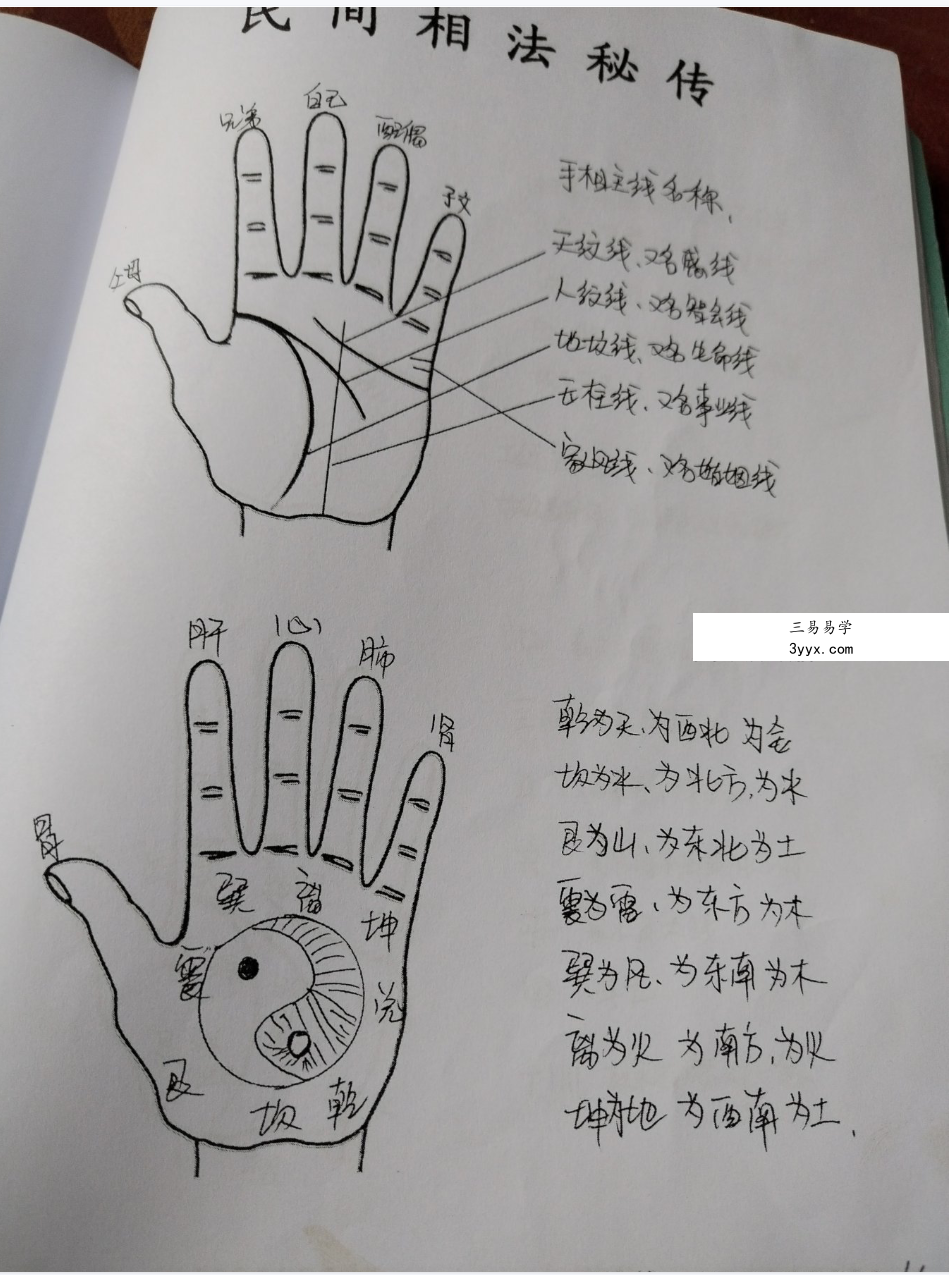 民间相法秘传
兄弟
自己
配偶
子女
父母
手相主线名称、
天纹线、又名感线
人纹线、又名智会线
地纹线、又名生命线
玉柱线、又名事业线
家风线、又名婚姻线
三易易学
3yyx.com
肝
心
肺
肾
脾
巽
离
坤
震
兑
艮
坎
乾
乾为天、为西北 为金
坎为水、为北方,为水
艮为山、为东北为土
震为雷、为东方为木
巽为风、为东南为木
离为火 为南方,为火
坤为地 为西南为土、